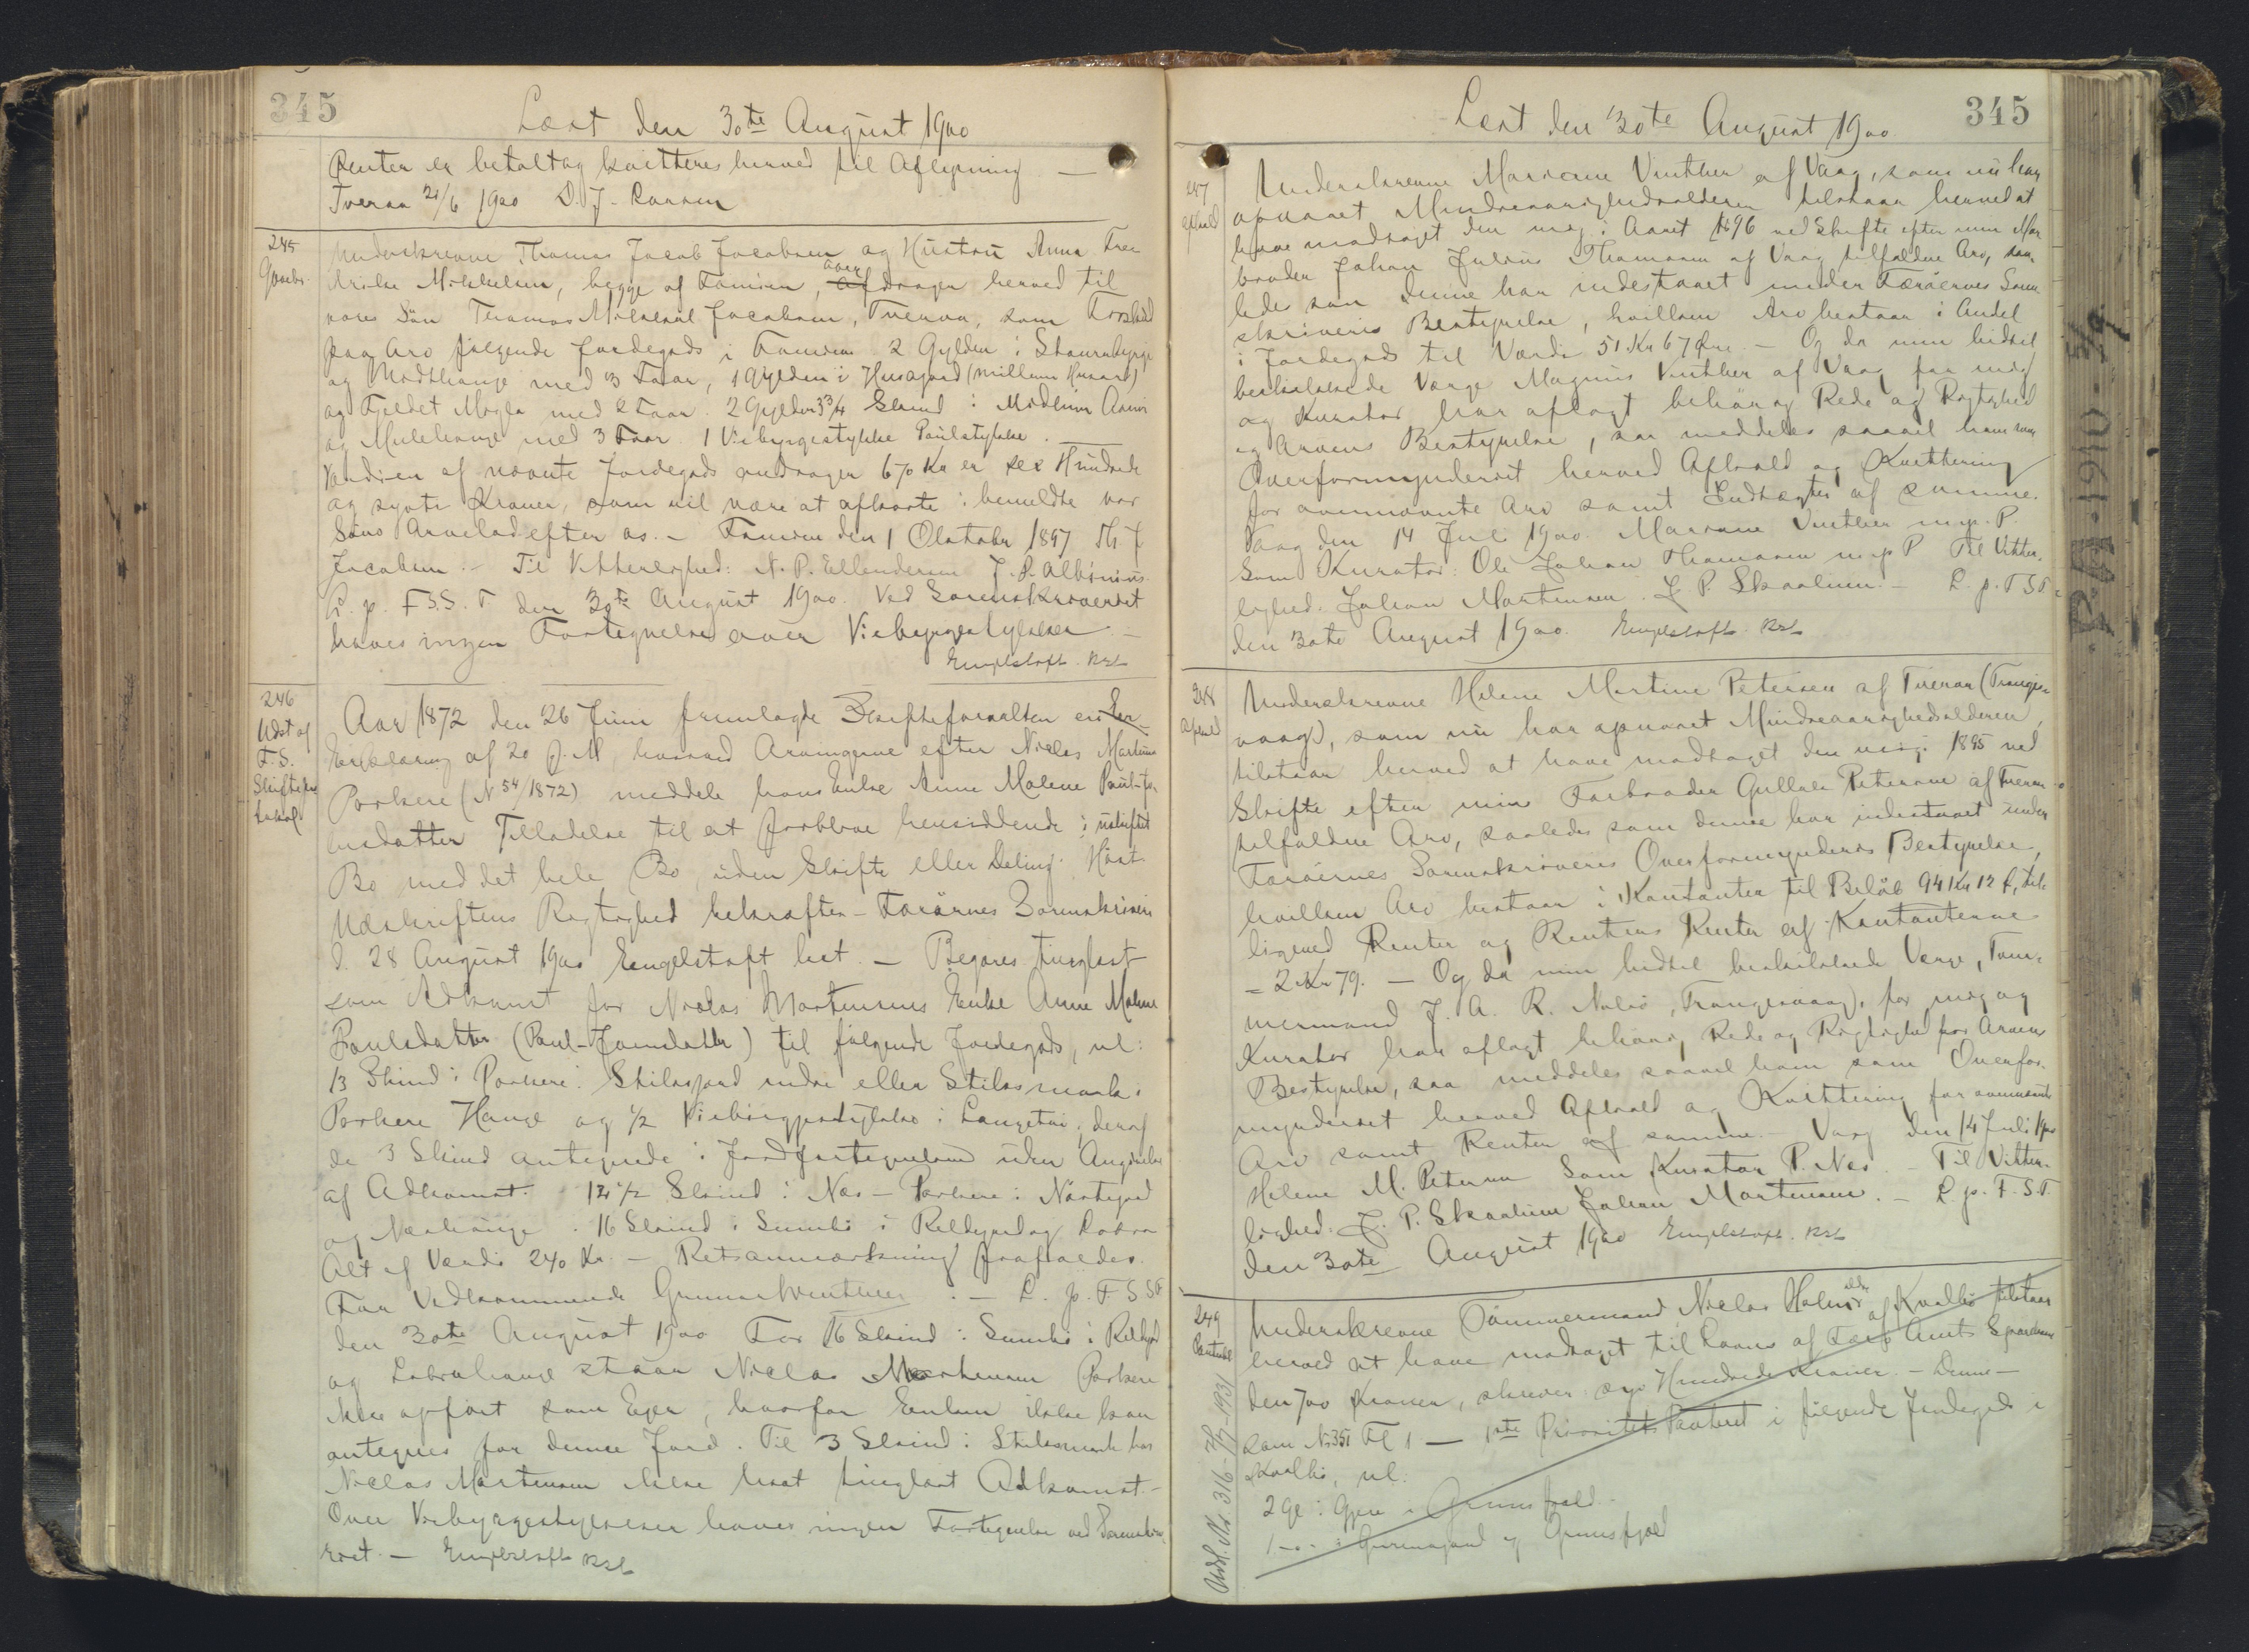 345
Læst den 30te August 1900
Renter er betalt og kvitteres herved til Aflysning. —
Tveraa 21/6 1900 D. J. Larsen
245
Gavebr.
Underskrevne Thomas Jacob Jacobsen og Hustru Anna Fre
drikke Mikkelsen, begge af Famien, over Afdrager herved til
vores Søn Thomas Mikkjal Jacobsen, Tveraa, som Forskud
paa Arv følgende Jordegods i Famien 2 Gylden i
og med 3 Faar, 1 Gylden i Husagard (millum Husara)
og Fjeldet Mogla med 2 Faar. 2 Gylden 3 3/4 Skind i Midlum
og Mulehauge med 3 Faar. 1 Viebyrgestykke Paulstykke. —
Værdien af nævnte Jordegods andrager 670 Kr er sex Hundrede
og syvti Kroner, som vil være at afkorte i bemeldte vor
Søns Arvelod efter os. — Famien den 1 Oktober 1897 Th. J
Jacobsen. — Til Vitterlighed: N. P. Ellendersen J. P. Albinius.
L. p. F. S. S. T den 30te August 1900. Ved Sorenskriveriet
haves ingen Fortegnelse over Viebyrgestykker. —
Engelstoft. kst
246
Udst af
F. S.
Skifteprotokol
Aar 1872 den 26 Juni fremlagde Skifteforvalteren en Er
Erklæring af 20 d. M, hvorved Arvingerne efter Niclas Martens
Porkere (N 54/1872) meddele hans Enke Anne Malene Paul-Jo-
ensdatter Tilladelse til at forblive hensiddende i uskiftet
Bo med det hele Bo, uden Skifte eller Deling. Høst
Udskriftens Rigtighed bekræftes — Færøernes Sorenskriveri
d. 28 August 1900 Engelstoft kst. — Begæres tinglæst
som Adkomst for Niclas Mortensens Enke Anne Malene
Poulsdatter (Paul-Joensdatter) til følgende Jordegods, nl:
13 Skind i Porkere i Skilasjord indre eller Stilasmark i
Porkere Hauge og 1/2 Viebirgjestykke i Langetui, deraf
de 3 Skind antegnede i Jordfortegnelsen uden Angivelse
af Adkomst. 12 1/2 Skind i Næs — Porkere i Nartegard
og Næshauge. 16 Skind i Sumbø i Reldegard og Labra
Alt af Værdi 240 Kr. — Retsanmærkning frafaldes.
For Vedkommende Gunnar Winther . — L. p. F. S ST
den 30te August 1900 For 16 Skind i Sumbø i Reldegrd
og Labrahauge staar Niclas Mortensen Porkere
ikke opført som Ejer, hvorfor Enken ikke kan
antegnes for denne Jord. Til 3 Skind i Stilasmark har
Niclas Mortensen ikke havt tinglæst Adkomst. —
Over Viebyrgestykker haves ingen Fortegnelse ved Sorenskri-
veriet. — Engelstoft kst
345
Læst den 30te August 1900
247
Afkald
Underskrevne Mariane Vinther af Vaag, som nu har
opnaaet Mindreaarighedsalderen tilstaar herved at
have modtaget den mig i Aaret 1896 ved Skifte efter min Mor
broder Johan Julius Thomasen af Vaag tilfaldne Arv, saa
ledes som denne har indestaaet under Færøernes Soren
skriveris Bestyrelse, hvilken Arv bestaar i Andel
i Jordegods til Værdi 51 Kr 67 Øre — Og da min hidtil
beskikkede Værge Magnus Vinther af Vaag for mig
og Kurator har aflagt behørig Rede og Rigtighed
og Arvens Bestyrelse, saa meddeles saavel ham som
Overformynderiet herved Afkald og Kvittering
for ovennævnte Arv samt Indtægter af samme.
Vaag den 14 Juli 1900. Mariane Vinther m. p. P.
Som Kurator: Ole Johan Thomasen m p P Til Vitter-
lighed: Johan Mortensen. J. P. Skaalum. — L. p. F S T.
den 30te August 1900. Engelstoft. kst
248
Afkald
Underskrevne Helene Martine Petersen af Tveraa (Trangis-
vaag), som nu har opnaaet Mindreaarighedsalderen,
tilstaar herved at have modtaget den mig i 1895 ved
Skifte efter min Farbroder Gullak Petersen af Tveraa
tilfaldne Arv, saaledes som denne har indestaaet under
Færøernes Sorenskriveris Overformynderis Bestyrelse,
hvilken Arv bestaar i Kontanter til Beløb 94 Kr 12 Ø, til-
ligemed Renter og Rentens Renter af Kontanterne
= 2 Kr 79. — Og da min hidtil beskikkede Værge, Tøm-
mermand J. A. R. Nolsø, Trangisvaag, for mig og
Kurator har aflagt behørig Rede og Rigtighed for Arvens
Bestyrelse, saa meddeles saavel ham som Overfor-
mynderiet herved Afkald og Kvittering for ovennævnte
Arv samt Renter af samme. — Vaag den 14 Juli 1900
Helene M. Petersen Som Kurator P. Næs. — Til Vitter-
lighed: J. P. Skaalum Johan Mortensen. — L. p. F. S. T.
den 30te August 1900 Engelstoft. kst
249
Pantobl
Underskrevne Tømmermand Niclas Holm ældr af Kvalbø tilstaar
herved at have modtaget til Laans af Færø Amts Sparekasse
den 700 Kroner, skriver syv Hundrede Kroner. — Denne —
Laan No 351 Fl 1 — 1ste Prioritets Panteret i følgende Jordegods i
Kvalbø, nl:
2 Gl i Gjere i Grimsfjeld —
1 —o— i Heimagard og Grimsfjeld
Udsl. No 316 - 1931
P.B. 1910 - 5/9